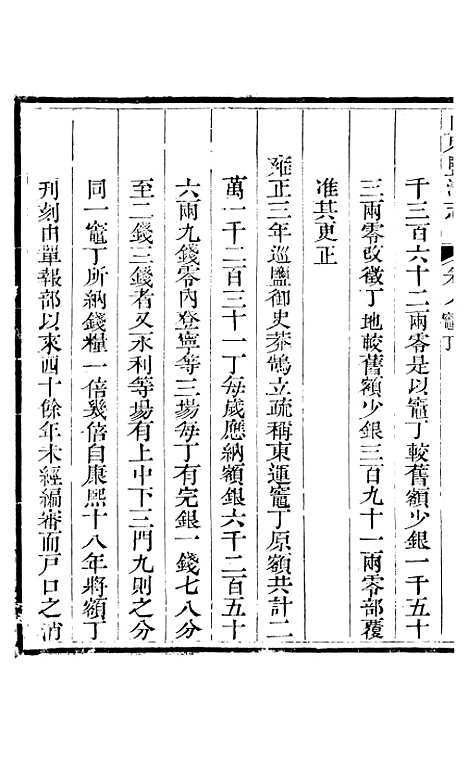 千三百六十二兩零是以竈丁較舊額少銀一千五十
三兩零改徵丁地較舊額少銀三百九十一兩零部覆
准其更正
雍正三年巡鹽御史莽鵠立疏稱東運竈丁原額共計二
萬一千二百三十一丁每歲應納額銀六千二百五十
六兩九錢零內登寧等三場每丁有完銀一錢七八分
至二錢三錢者又永利等場有上中下三門九則之分
同一竈丁所納錢糧一倍幾倍自康熙十八年將額丁
刋刻由單報部以來四十餘年未經編審而戸口之消